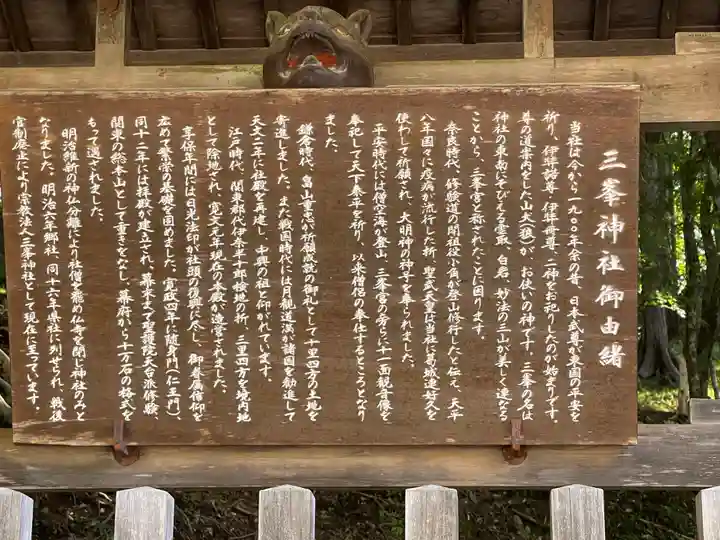 三峯神社御由緒
当社は今から一九〇〇年余の昔、日本武尊が東国の平安を
祈り、伊弉諾尊、伊弉册尊、二神をお祀りしたのが始まりです。
尊の道案内をした山犬(狼)が、お使いの神です。三峯の名は
神社の東南にそびえる雲取、白岩、妙法の三山が美しく連なる
ことから、三峯宮と称されたことに因ります。
奈良時代、修験道の開祖役小角が登山修行したと伝え、天平
八年国々に疫病が流行した折、聖武天皇は当社に葛城連好久を
使わして祈願され、大明神の神号を奉られました。
平安時代には僧空海が登山、三峯宮の傍らに十一面観音像を
奉祀して天下泰平を祈り、以来僧侶の奉仕するところとなり
ました。
鎌倉時代、畠山重忠が祈願成就の御礼として十里四方の土地を
寄進しました。また戦国時代には月観道満が諸国を勧進して
天文二年に社殿を再建し、中興の祖と仰がれています。
江戸時代、関東郡代伊奈半十郎検地の折、三里四方を境内地
として除地され、寛文元年現在の本殿が造営されました。
享保年間には日光法印が社頭の復興に尽し、御眷属信仰を
広めて繁栄の基礎を固めました。寛政四年に随身門(仁王門)、
同十二年には拝殿が建立され、幕末まで聖護院天台派修験、
関東の総本山として重きをなし、幕府から十万石の格式を
もって遇されました。
明治維新の神仏分離により社僧を罷め仏寺を閉じ神社のみと
なりました。明治六年郷社、同十六年県社に列せられ、戦後
官制廃止により宗教法人三峯神社として現在に至っています。